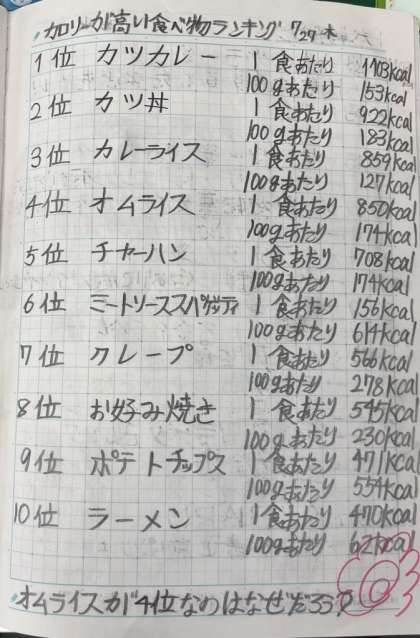 カロリーが高い食べ物ランキング 7/27 木
1位 カツカレー 1食あたり 1103kcal
100gあたり 153kcal
2位 カツ丼 1食あたり 922kcal
100gあたり 183kcal
3位 カレーライス 1食あたり 859kcal
100gあたり 127kcal
4位 オムライス 1食あたり 850kcal
100gあたり 174kcal
5位 チャーハン 1食あたり 708kcal
100gあたり 174kcal
6位 ミートソーススパゲッティ 1食あたり 156kcal
100gあたり 614kcal
7位 クレープ 1食あたり 566kcal
100gあたり 278kcal
8位 お好み焼き 1食あたり 545kcal
100gあたり 230kcal
9位 ポテトチップス 1食あたり 471kcal
100gあたり 554kcal
10位 ラーメン 1食あたり 470kcal
100gあたり 62kcal
オムライスが4位なのはなぜだろう?